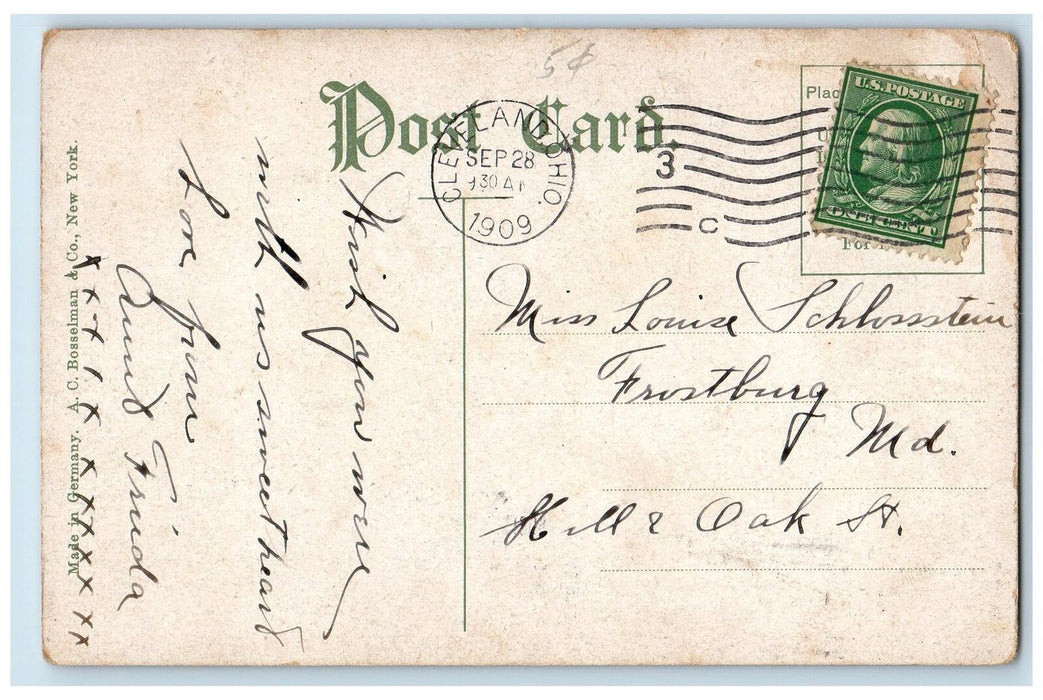 5¢
Post Card.
CLEVELAND, OHIO.
SEP 28
1909
3
C
Plac
U.S. POSTAGE
ONE CENT
For
Miss Louise Schlossstein
Frostburg
Md.
Hill & Oak St.
Wish you were
with us sweetheart
Love from
Aunt Frieda
x x x x x x x x x x x x
Made in Germany. A. C. Bosselman & Co., New York.